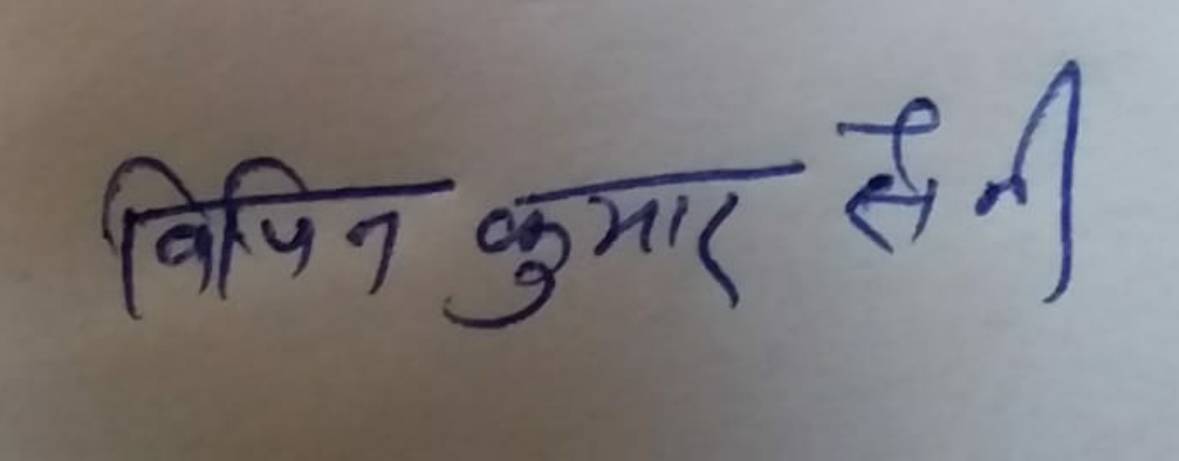 विपिन कुमार सैनी